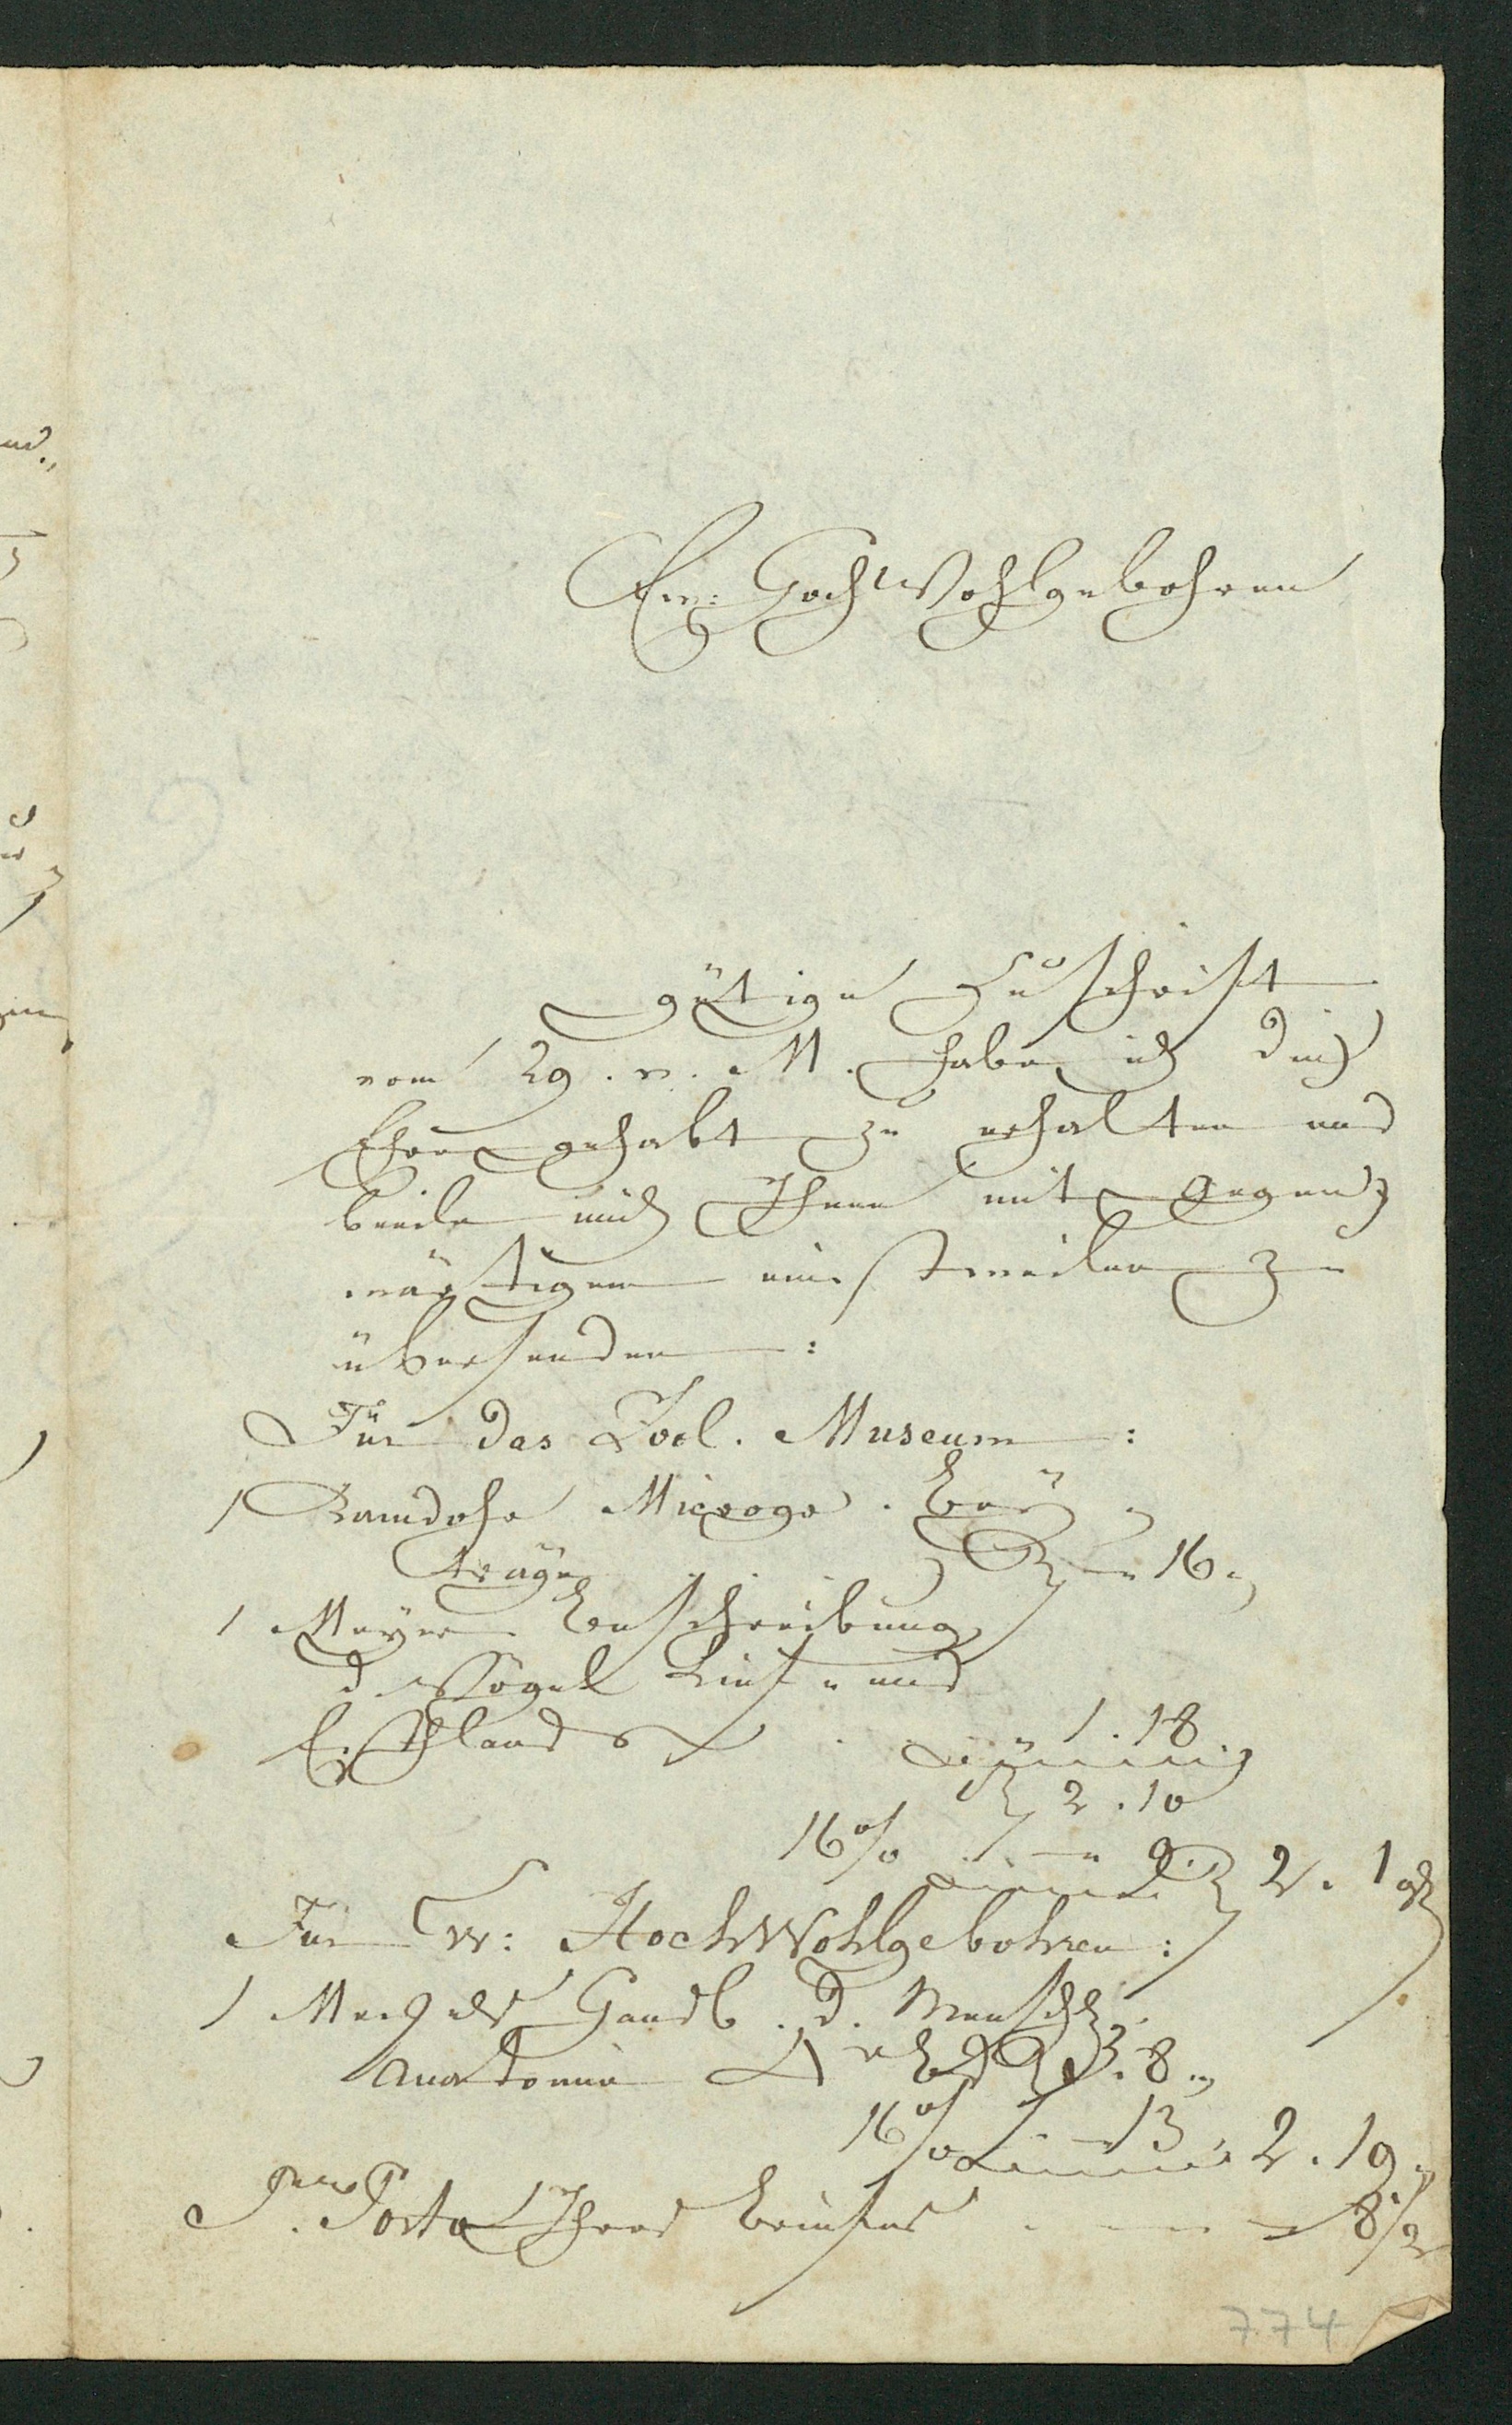 Ew: HochWohlgebohren
gütige Zuschrift
vom 29. v. M. habe ich die
Ehre gehabt zu erhalten und
beeile mich Ihnen mit Gegen-
wärtigem einstweilen zu
übersenden :
Für das Zool. Museum :
1 Ramdohr Microgr. Bey-
träge " 16 "
1 Meyer Beschreibung
d. Vögel Lief- und
Esthlands 1 . 18
2 . 10
16% " 9. 2 . 1
Für Ew: HochWohlgebohren :
1 Meckels Handb. d. Menschl.
Anatomie 3 . 8 "
16% 13 2 . 19 "
Pr. Porto Ihres Briefes 8 1/2
774